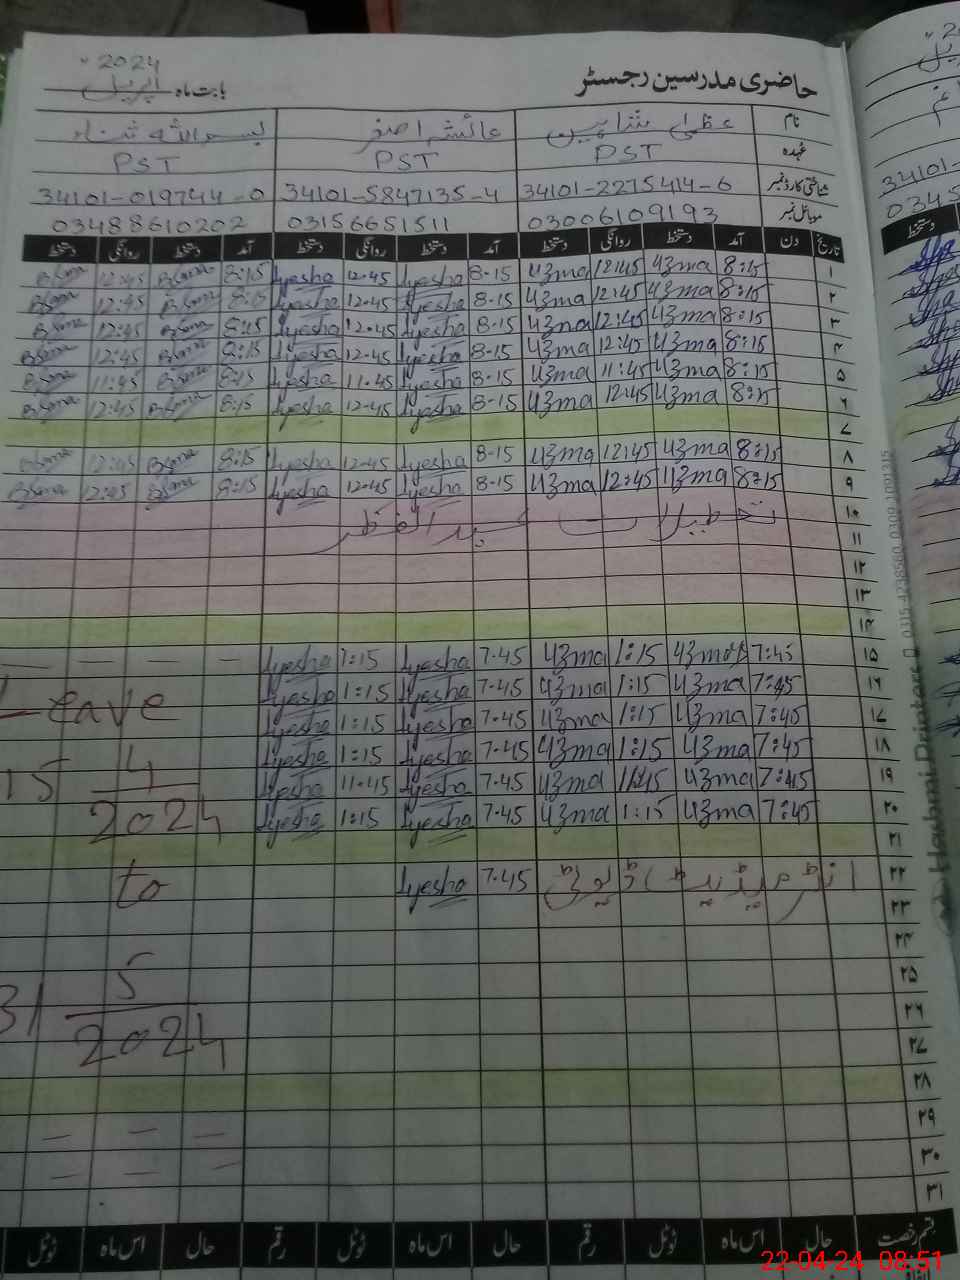 حاضری مدرسین رجسٹر بابت ماہ اپریل 2024ء
نام عظمیٰ شاہین عائشہ اصغر بسم اللہ ثناء
عہدہ PST PST PST
شناختی کارڈ نمبر 34101-2275414-6 34101-5847135-4 34101-019744-0
موبائل نمبر 03006109193 03156651511 03488610202
تاریخ دن آمد دستخط روانگی دستخط آمد دستخط روانگی دستخط آمد دستخط روانگی دستخط
۱ 8:15 Uzma 12:45 Uzma 8-15 Ayesha 12-45 Ayesha 8:15 Bsma 12:45 Bsma
۲ 8:15 Uzma 12:45 Uzma 8-15 Ayesha 12-45 Ayesha 8:15 Bsma 12:45 Bsma
۳ 8:15 Uzma 12:45 Uzma 8-15 Ayesha 12-45 Ayesha 8:15 Bsma 12:45 Bsma
۴ 8:15 Uzma 12:45 Uzma 8-15 Ayesha 12-45 Ayesha 8:15 Bsma 12:45 Bsma
۵ 8:15 Uzma 11:45 Uzma 8-15 Ayesha 11-45 Ayesha 8:15 Bsma 11:45 Bsma
۶ 8:15 Uzma 12:45 Uzma 8-15 Ayesha 12-45 Ayesha 8:15 Bsma 12:45 Bsma
۷
۸ 8:15 Uzma 12:45 Uzma 8-15 Ayesha 12-45 Ayesha 8:15 Bsma 12:45 Bsma
۹ 8:15 Uzma 12:45 Uzma 8-15 Ayesha 12-45 Ayesha 8:15 Bsma 12:45 Bsma
۱۰ تعطیلات عید الفطر
۱۱
۱۲
۱۳
۱۴
۱۵ 7:45 Uzma 1:15 Uzma 7-45 Ayesha 1:15 Ayesha — — — —
۱۶ 7:45 Uzma 1:15 Uzma 7-45 Ayesha 1:15 Ayesha Leave
۱۷ 7:45 Uzma 1:15 Uzma 7-45 Ayesha 1:15 Ayesha
۱۸ 7:45 Uzma 1:15 Uzma 7-45 Ayesha 1:15 Ayesha 15 4
۱۹ 7:45 Uzma 11:45 Uzma 7-45 Ayesha 11-45 Ayesha
۲۰ 7:45 Uzma 1:15 Uzma 7-45 Ayesha 1:15 Ayesha 2024
۲۱
۲۲ انٹرمیڈیٹ ڈیوٹی 7-45 Ayesha to
۲۳
۲۴
۲۵ 5
۲۶ 31
۲۷ 2024
۲۸
۲۹ — — —
۳۰ — — —
۳۱
قسم رخصت حال اس ماہ ٹوٹل رقم حال اس ماہ ٹوٹل رقم حال اس ماہ ٹوٹل
Hashimi Printers 0315-4238580
34101-
دستخط
22-04-24 08:51